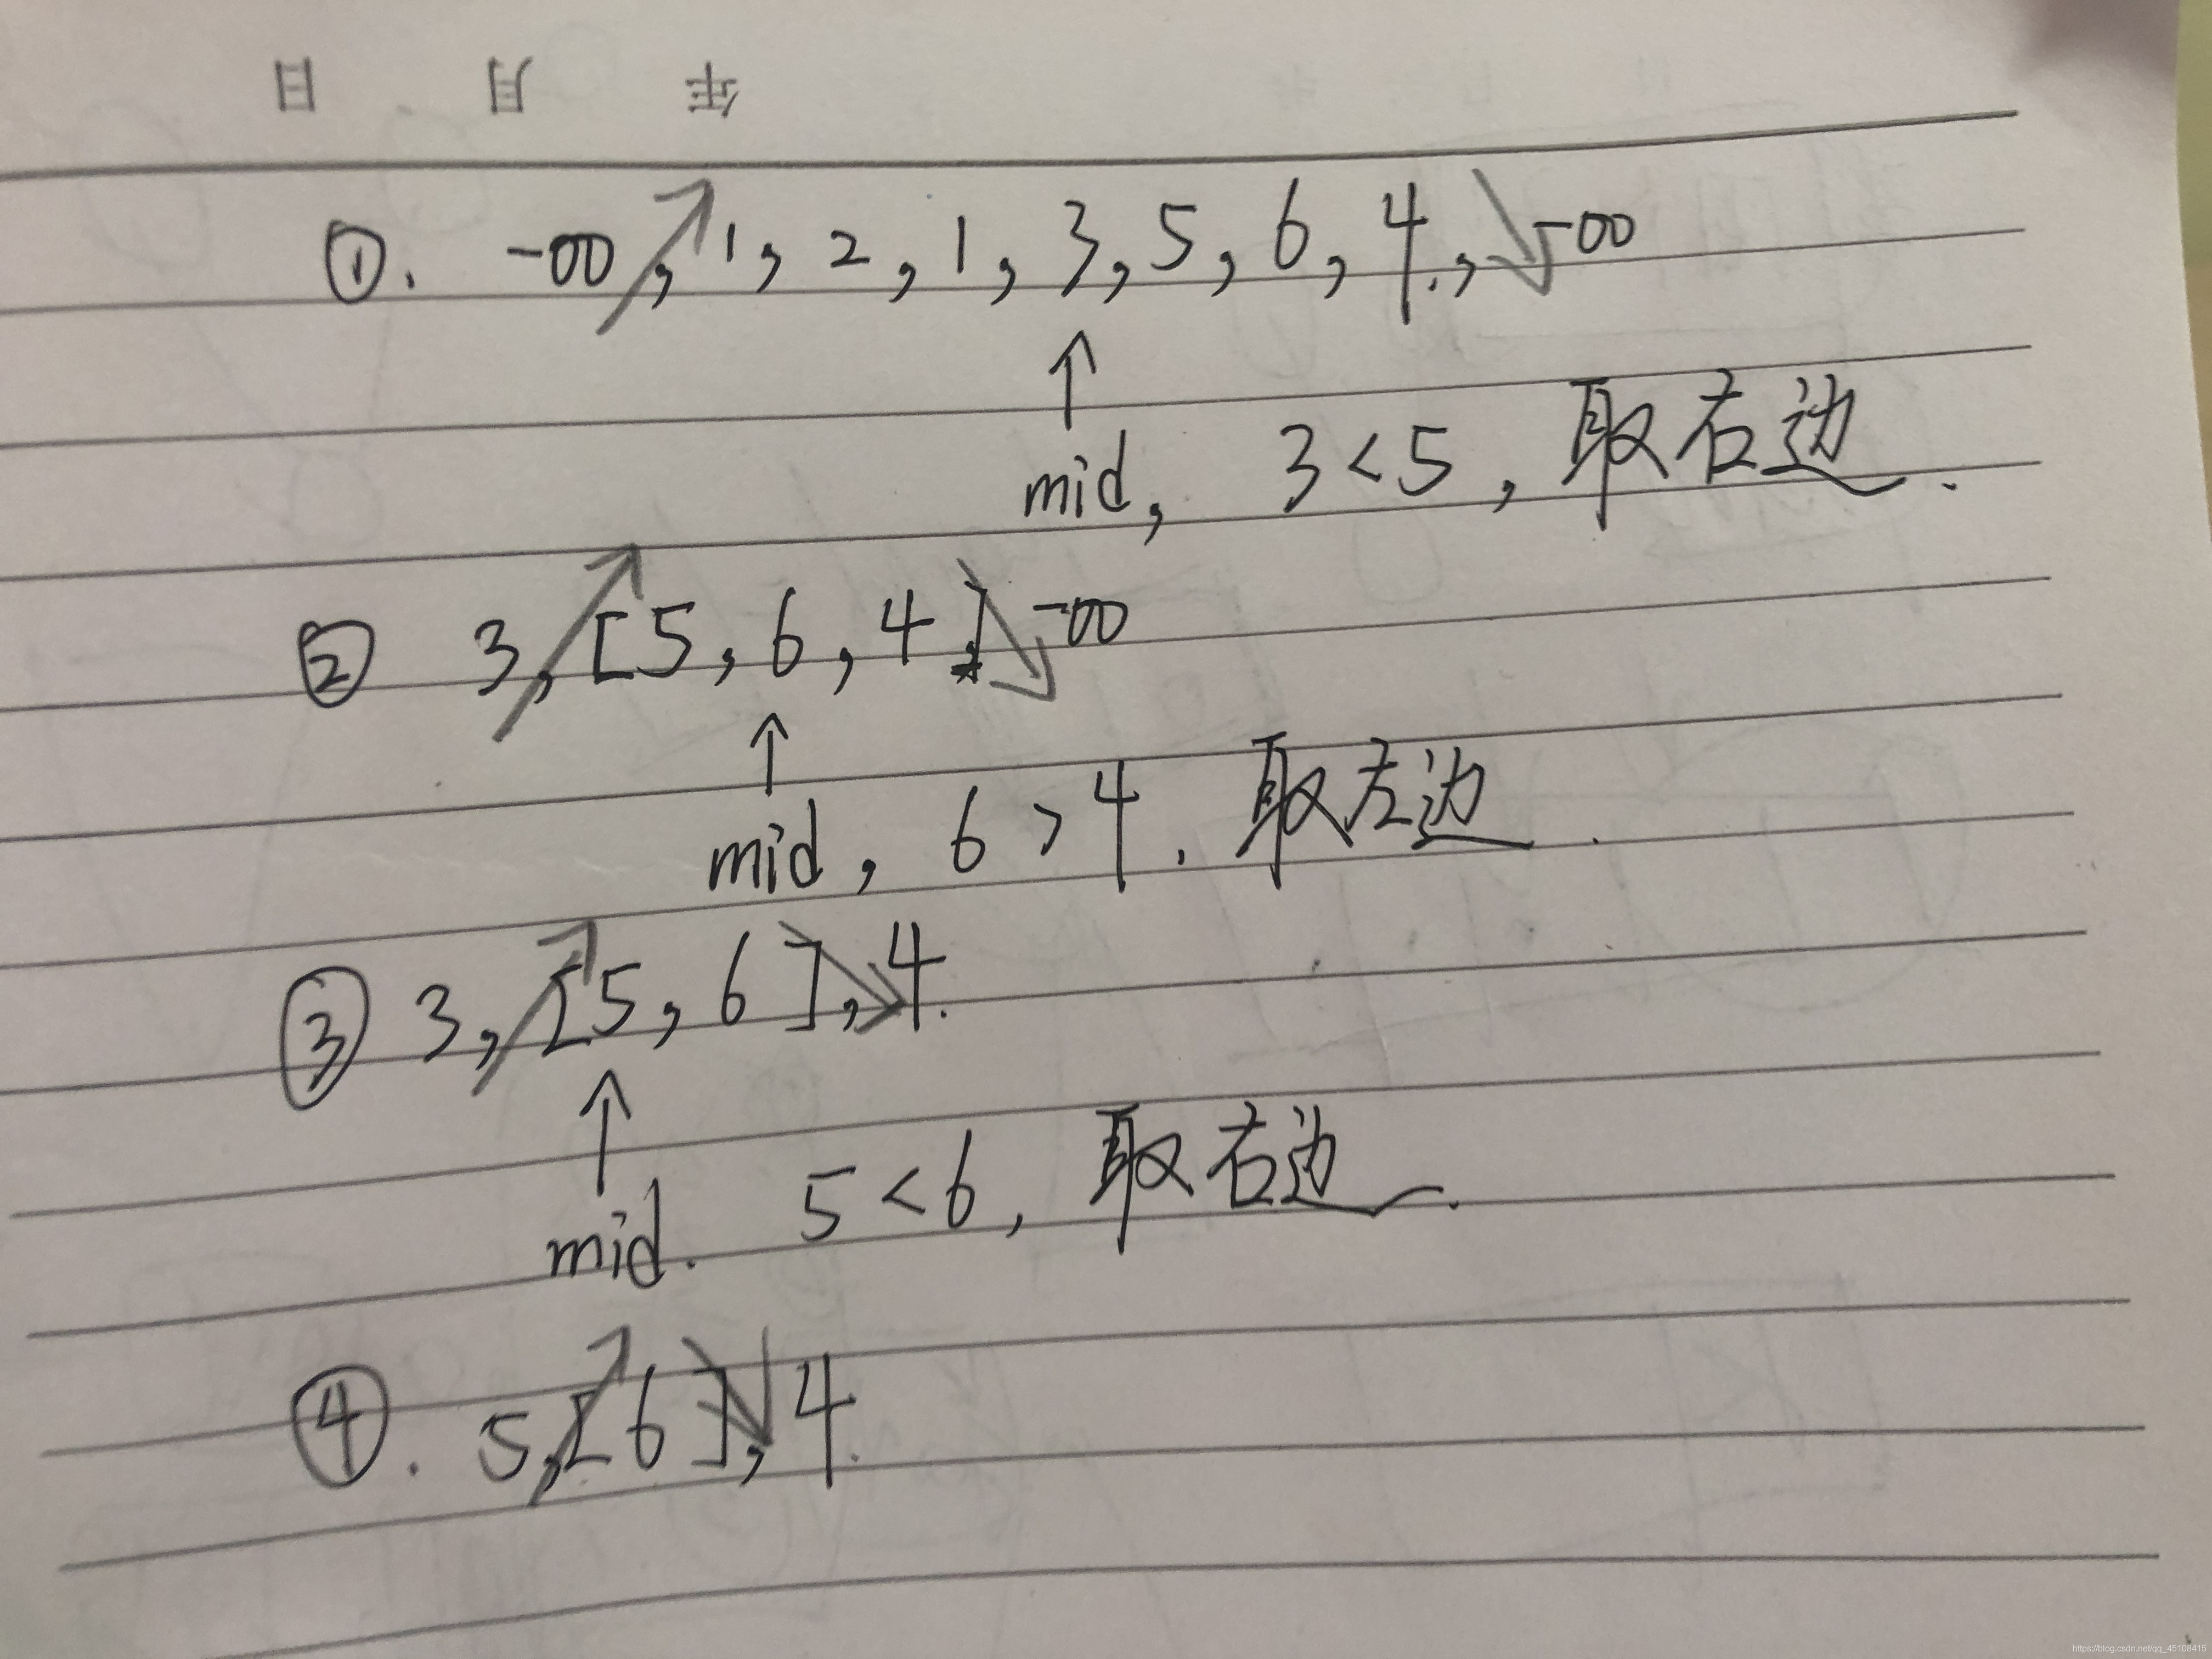 日 月 年
①. -∞, 1, 2, 1, 3, 5, 6, 4., -∞
mid, 3<5, 取右边.
② 3, [5, 6, 4], -∞
mid, 6>4. 取左边.
③ 3, [5, 6], 4.
mid. 5<6, 取右边.
④. 5, [6], 4.
https://blog.csdn.net/qq_45108415